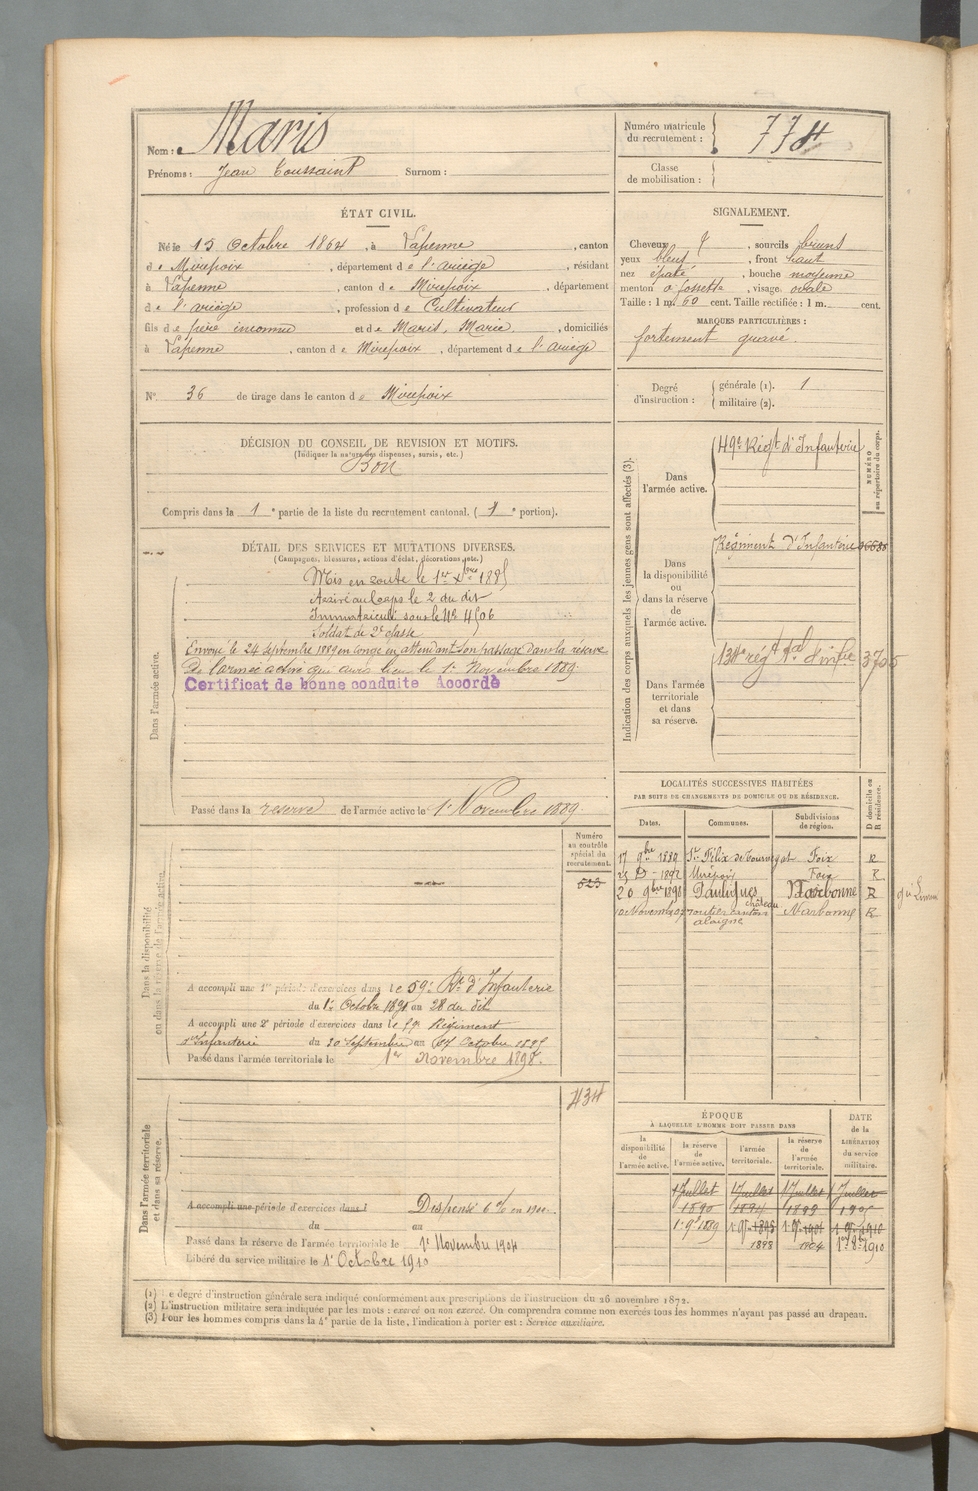 Nom : Maris
Prénoms : Jean Toussaint Surnom :
ÉTAT CIVIL.
Né le 15 Octobre 1864, à Vapenne, canton
de Mirepoix, département de l'ariège, résidant
à Vapenne, canton de Mirepoix, département
de l'ariège, profession de Cultivateur
fils de père inconnu et de Maris, Marie, domiciliés
à Vapenne, canton de Mirepoix, département de l'ariège
N° 36 de tirage dans le canton de Mirepoix
DÉCISION DU CONSEIL DE REVISION ET MOTIFS.
(Indiquer la nature des dispenses, sursis, etc.)
Bon
Compris dans la 1e partie de la liste du recrutement cantonal. (1e portion).
DÉTAIL DES SERVICES ET MUTATIONS DIVERSES.
(Campagnes, blessures, actions d'éclat, décorations, etc.)
Dans l'armée active.
Mis en route le 1er Xbre 1885
Arrivé au Corps le 2 du dit
Immatriculé sous le N° 4506
Soldat de 2e classe
Envoyé le 24 Septembre 1889 en congé en attendant son passage dans la réserve
de l'armée active qui aura lieu le 1er Novembre 1889
Certificat de bonne conduite Accordé
Passé dans la reserve de l'armée active le 1er Novembre 1889
Dans la disponibilité
ou dans la réserve de l'armée active.
Numéro
au contrôle
spécial du
recrutement.
523
A accompli une 1re période d'exercices dans le 59e Rt d'Infanterie
du 1er Octobre 1891 au 28 du dit
A accompli une 2e période d'exercices dans le 59e Régiment
d'Infanterie du 20 Septembre au 17 Octobre 1895
Passé dans l'armée territoriale le 1er Novembre 1898.
Dans l'armée territoriale
et dans sa réserve.
434
A accompli une période d'exercices dans l Dispensé 6 % en 1900.
du au
Passé dans la réserve de l'armée territoriale le 1er Novembre 1904
Libéré du service militaire le 1er Octobre 1910
Numéro matricule
du recrutement : 774
Classe
de mobilisation :
SIGNALEMENT.
Cheveux , sourcils bruns
yeux bleus, front haut
nez épaté, bouche moyenne
menton à fossette, visage ovale
Taille : 1 m. 60 cent. Taille rectifiée : 1 m. cent.
MARQUES PARTICULIÈRES :
fortement gravé.
Degré
d'instruction :
générale (1). 1
militaire (2).
Indication des corps auxquels les jeunes gens sont affectés (3).
NUMÉRO
au répertoire du corps.
Dans
l'armée active.
49e Régt d'Infanterie
Dans
la disponibilité
ou
dans la réserve
de
l'armée active.
Régiment d'Infanterie
Dans l'armée
territoriale
et dans
sa réserve.
134e régt tal d'infie 3705
LOCALITÉS SUCCESSIVES HABITÉES
PAR SUITE DE CHANGEMENTS DE DOMICILE OU DE RÉSIDENCE.
Dates. Communes. Subdivisions de région. D domicile ou R résidence.
17 9bre 1889 St Félix de Tournegat Foix R
25 D - 1892 Mirepoix Foix R
20 9bre 1898 Pauligues Narbonne R
Novembre château Narbonne R
alaigne
ÉPOQUE
À LAQUELLE L'HOMME DOIT PASSER DANS
DATE
de la
LIBÉRATION
du service
militaire.
la disponibilité de l'armée active.
la réserve de l'armée active.
l'armée territoriale.
la réserve de l'armée territoriale.
1 Juillet 1890 1 Juillet 1894 1 Juillet 1899 1 Juillet 1905
1er 9bre 1889 1er 9bre 1895 1er 9bre 1901 1er 9bre 1910
1898 1904 1er 8bre 1910
(1) Le degré d'instruction générale sera indiqué conformément aux prescriptions de l'instruction du 26 novembre 1872.
(2) L'instruction militaire sera indiquée par les mots : exercé ou non exercé. On comprendra comme non exercés tous les hommes n'ayant pas passé au drapeau.
(3) Pour les hommes compris dans la 4e partie de la liste, l'indication à porter est : Service auxiliaire.